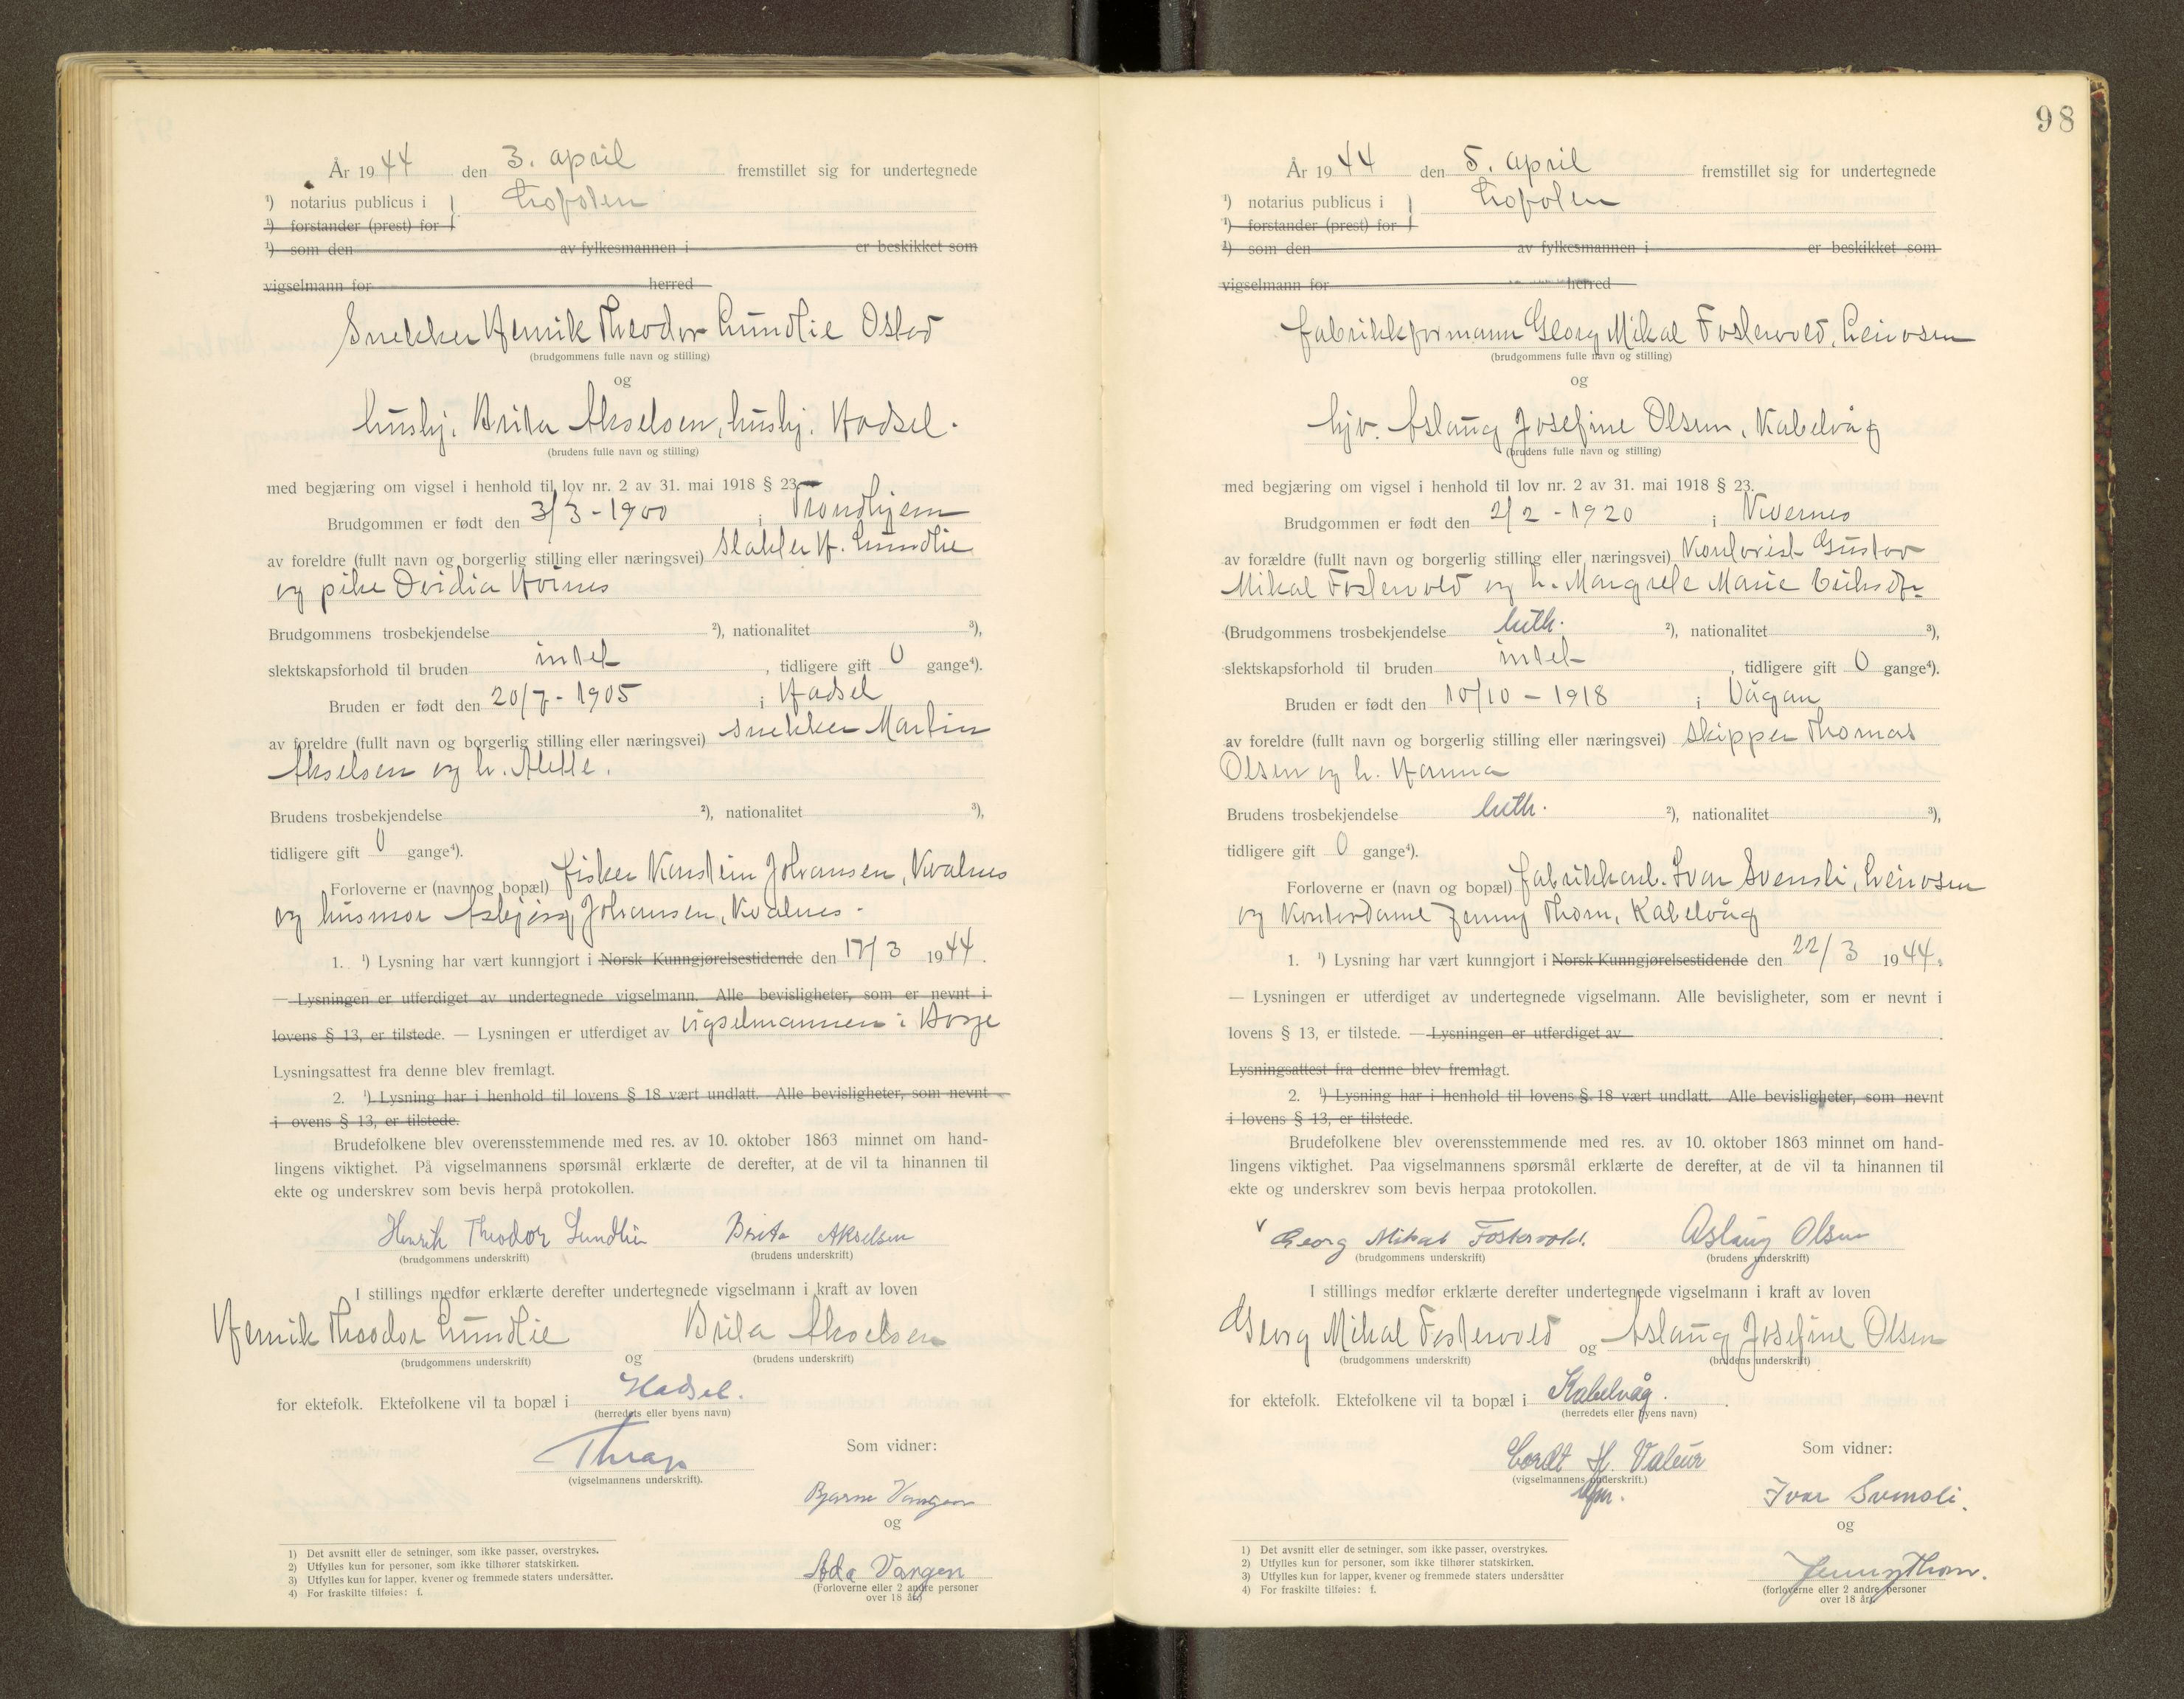 År 1944 den 3. april fremstillet sig for undertegnede
¹) notarius publicus i Lofoten
¹) forstander (prest) for
¹) som den av fylkesmannen i er beskikket som
vigselmann for herred
Snekker Henrik Theodor Lundlie Ostad
(brudgommens fulle navn og stilling)
og
hushj. Brita Akselsen, hushj. Hadsel.
(brudens fulle navn og stilling)
med begjæring om vigsel i henhold til lov nr. 2 av 31. mai 1918 § 23.
Brudgommen er født den 3/3 - 1900 i Trondhjem
av foreldre (fullt navn og borgerlig stilling eller næringsvei) H. Lundlie
og pike Ovidia
Brudgommens trosbekjendelse ²), nationalitet ³),
slektskapsforhold til bruden intet, tidligere gift 0 gange⁴).
Bruden er født den 20/7 - 1905 i Hadsel
av foreldre (fullt navn og borgerlig stilling eller næringsvei) snekker Martin
Akselsen og h. Alette.
Brudens trosbekjendelse ²), nationalitet ³),
tidligere gift 0 gange⁴).
Forloverne er (navn og bopæl) fisker Karstein Johansen, Kvalnes
og husmor Asbjørg Johansen, Kvalnes.
1. ¹) Lysning har vært kunngjort i Norsk Kunngjørelsestidende den 17/3 1944.
— Lysningen er utferdiget av undertegnede vigselmann. Alle bevisligheter, som er nevnt i
lovens § 13, er tilstede. — Lysningen er utferdiget av vigselmannen i Borge
Lysningsattest fra denne blev fremlagt.
2. ¹) Lysning har i henhold til lovens § 18 vært undlatt. Alle bevisligheter, som nevnt
i ovens § 13, er tilstede.
Brudefolkene blev overensstemmende med res. av 10. oktober 1863 minnet om hand-
lingens viktighet. På vigselmannens spørsmål erklærte de derefter, at de vil ta hinannen til
ekte og underskrev som bevis herpå protokollen.
Henrik Theodor Lundlie Brita Akselsen
(brudgommens underskrift) (brudens underskrift)
I stillings medfør erklærte derefter undertegnede vigselmann i kraft av loven
Henrik Theodor Lundlie og Brita Akselsen
(brudgommens underskrift) (brudens underskrift)
for ektefolk. Ektefolkene vil ta bopæl i Hadsel.
(herredets eller byens navn)
Thrap
(vigselmannens underskrift).
Som vidner:
Bjarne Vangen
og
Ada Vangen
(Forloverne eller 2 andre personer
over 18 år.)
1) Det avsnitt eller de setninger, som ikke passer, overstrykes.
2) Utfylles kun for personer, som ikke tilhører statskirken.
3) Utfylles kun for lapper, kvener og fremmede staters undersåtter.
4) For fraskilte tilføies: f.
98
År 1944 den 5. april fremstillet sig for undertegnede
¹) notarius publicus i Lofoten
¹) forstander (prest) for
¹) som den av fylkesmannen i er beskikket som
vigselmann for herred
fabrikkformann Georg Mikal Fostervold, Leinosen
(brudgommens fulle navn og stilling)
og
hjv. Aslaug Josefine Olsen, Kabelvåg
(brudens fulle navn og stilling)
med begjæring om vigsel i henhold til lov nr. 2 av 31. mai 1918 § 23.
Brudgommen er født den 2/2 - 1920 i Kvernes
av forældre (fullt navn og borgerlig stilling eller næringsvei) Kontorist Gustav
Mikal Fostervold og h. Margrete Marie
(Brudgommens trosbekjendelse luth. ²), nationalitet ³),
slektskapsforhold til bruden intet, tidligere gift 0 gange⁴).
Bruden er født den 10/10 - 1918 i Vågan
av foreldre (fullt navn og borgerlig stilling eller næringsvei) skipper Thomas
Olsen og h. Hanna
Brudens trosbekjendelse luth. ²), nationalitet ³),
tidligere gift 0 gange⁴).
Forloverne er (navn og bopæl) fabrikkarb. Ivar Svensli, Leinosen
og Kontordame Jenny Thom, Kabelvåg
1. ¹) Lysning har vært kunngjort i Norsk Kunngjørelsestidende den 22/3 1944.
— Lysningen er utferdiget av undertegnede vigselmann. Alle bevisligheter, som er nevnt i
lovens § 13, er tilstede. — Lysningen er utferdiget av .
Lysningsattest fra denne blev fremlagt.
2. ¹) Lysning har i henhold til lovens § 18 vært undlatt. Alle bevisligheter, som nevnt
i lovens § 13, er tilstede.
Brudefolkene blev overensstemmende med res. av 10. oktober 1863 minnet om hand-
lingens viktighet. Paa vigselmannens spørsmål erklærte de derefter, at de vil ta hinannen til
ekte og underskrev som bevis herpaa protokollen.
Georg Mikal Fostervold. Aslaug Olsen
(brudgommens underskrift) (brudens underskrift)
I stillings medfør erklærte derefter undertegnede vigselmann i kraft av loven
Georg Mikal Fostervold og Aslaug Josefine Olsen
(brudgommens underskrift) (brudens underskrift)
for ektefolk. Ektefolkene vil ta bopæl i Kabelvåg.
(herredets eller byens navn)
Cordt H. Valeur
(vigselmannens underskrift.)
Som vidner:
Ivar Svensli.
og
Jenny Thom.
(forloverne eller 2 andre personer
over 18 år)
1) Det avsnitt eller de setninger, som ikke passer, overstrykes.
2) Utfylles kun for personer, som ikke tilhører statskirken.
3) Utfylles kun for lapper, kvener og fremmede staters undersåtter
4) For fraskilte tilføies: f.